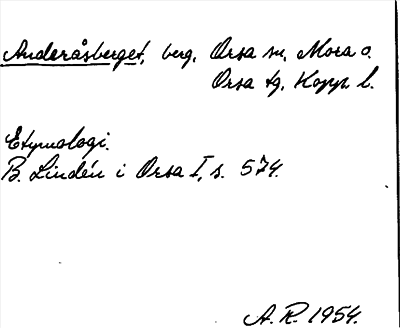 Anderåsberget, berg, Orsa sn, Mora o.
Orsa tg, Kopp. l.
Etymologi.
B. Lindén i Orsa I, s. 574.
A. R. 1954.